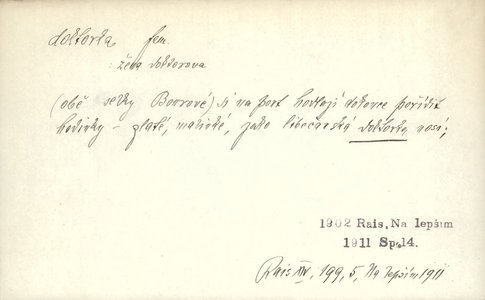 doktorka fem.
: žena doktorova
(obě Bavorově) si na pout hodlají dokonce pořídit
hodinky – zlaté, maličké, jako libečanská doktorka nosí;
1902 Rais, Na lepším
1911 Sp. 14.
Rais XIV, 199, 5, Na lepším 1911